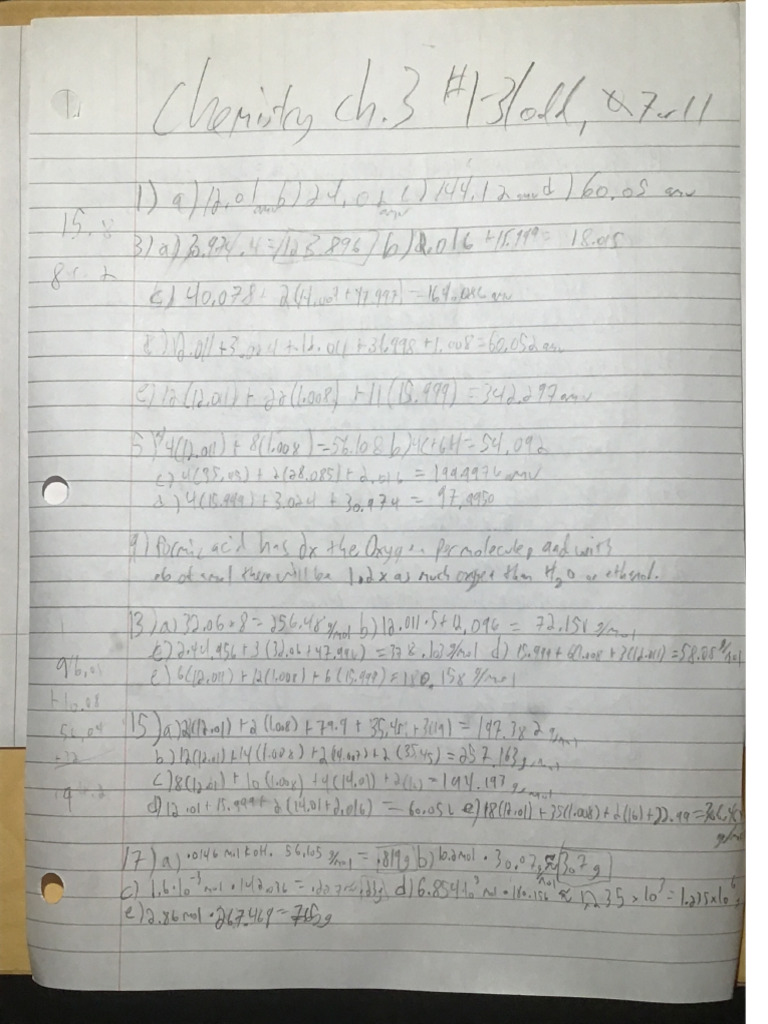 Chemistry Ch.3 #1-31 odd, & 7 or 11
1) a) 12.01 amu b) 24.02 amu c) 144.12 amu d) 60.05 amu
15.8
3) a) 30.974.4=123.896 b) 2.016 +15.999= 18.015
8
c) 40.078+ 2(14.007+47.997) =164.086 amu
d) 12.011+3.024+12.011+31.998+1.008=60.052 amu
e) 12(12.011)+ 22(1.008) +11(15.999) =342.297 amu
5) a) 4(12.011)+ 8(1.008)=56.108 b) 4C+6H=54.092
c) 4(35.45) + 2(28.085)+2.016 = 199.9976 amu
d) 4(15.999)+3.024 +30.974 = 97.9950
9) Formic acid has 2x the Oxygen per molecule, and with
of there will be 1.2x as much oxygen than H2O or ethanol.
13) a) 32.06·8= 256.48 g/mol b) 12.011·5+12.096 = 72.151 g/mol
c) 2·44.956+3(32.06+47.996) =378.103 g/mol d) 15.999+6·1.008+3(12.011)=58.08 g/mol
e) 6(12.011)+12(1.008)+6(15.999)=180.158 g/mol
+10.08
56.04
+32
15) a) 2(12.01)+2(1.008)+79.9+35.45+3(19) = 197.382 g/mol
b) 12(12.01)+14(1.008)+2(14.007)+2(35.45)=257.163 g/mol
c) 8(12.01)+10(1.008)+4(14.01)+2(16)=194.193 g/mol
d) 12.01+15.999+2(14.01+2.016) =60.052 e) 18(12.01)+35(1.008)+2(16)+22.99=
g/mol
17) a) .0146 mol KOH. 56.105 g/mol = .819g b) 10.2mol · 30.07 g/mol ≈ 307g
c) 1.6·10⁻³ mol · 142.036 = .23g d) 6.854·10³ mol · 180.156 ≈ 1,235 x10³ =1.235x10⁶ g
e) 2.86mol·267.469=765g